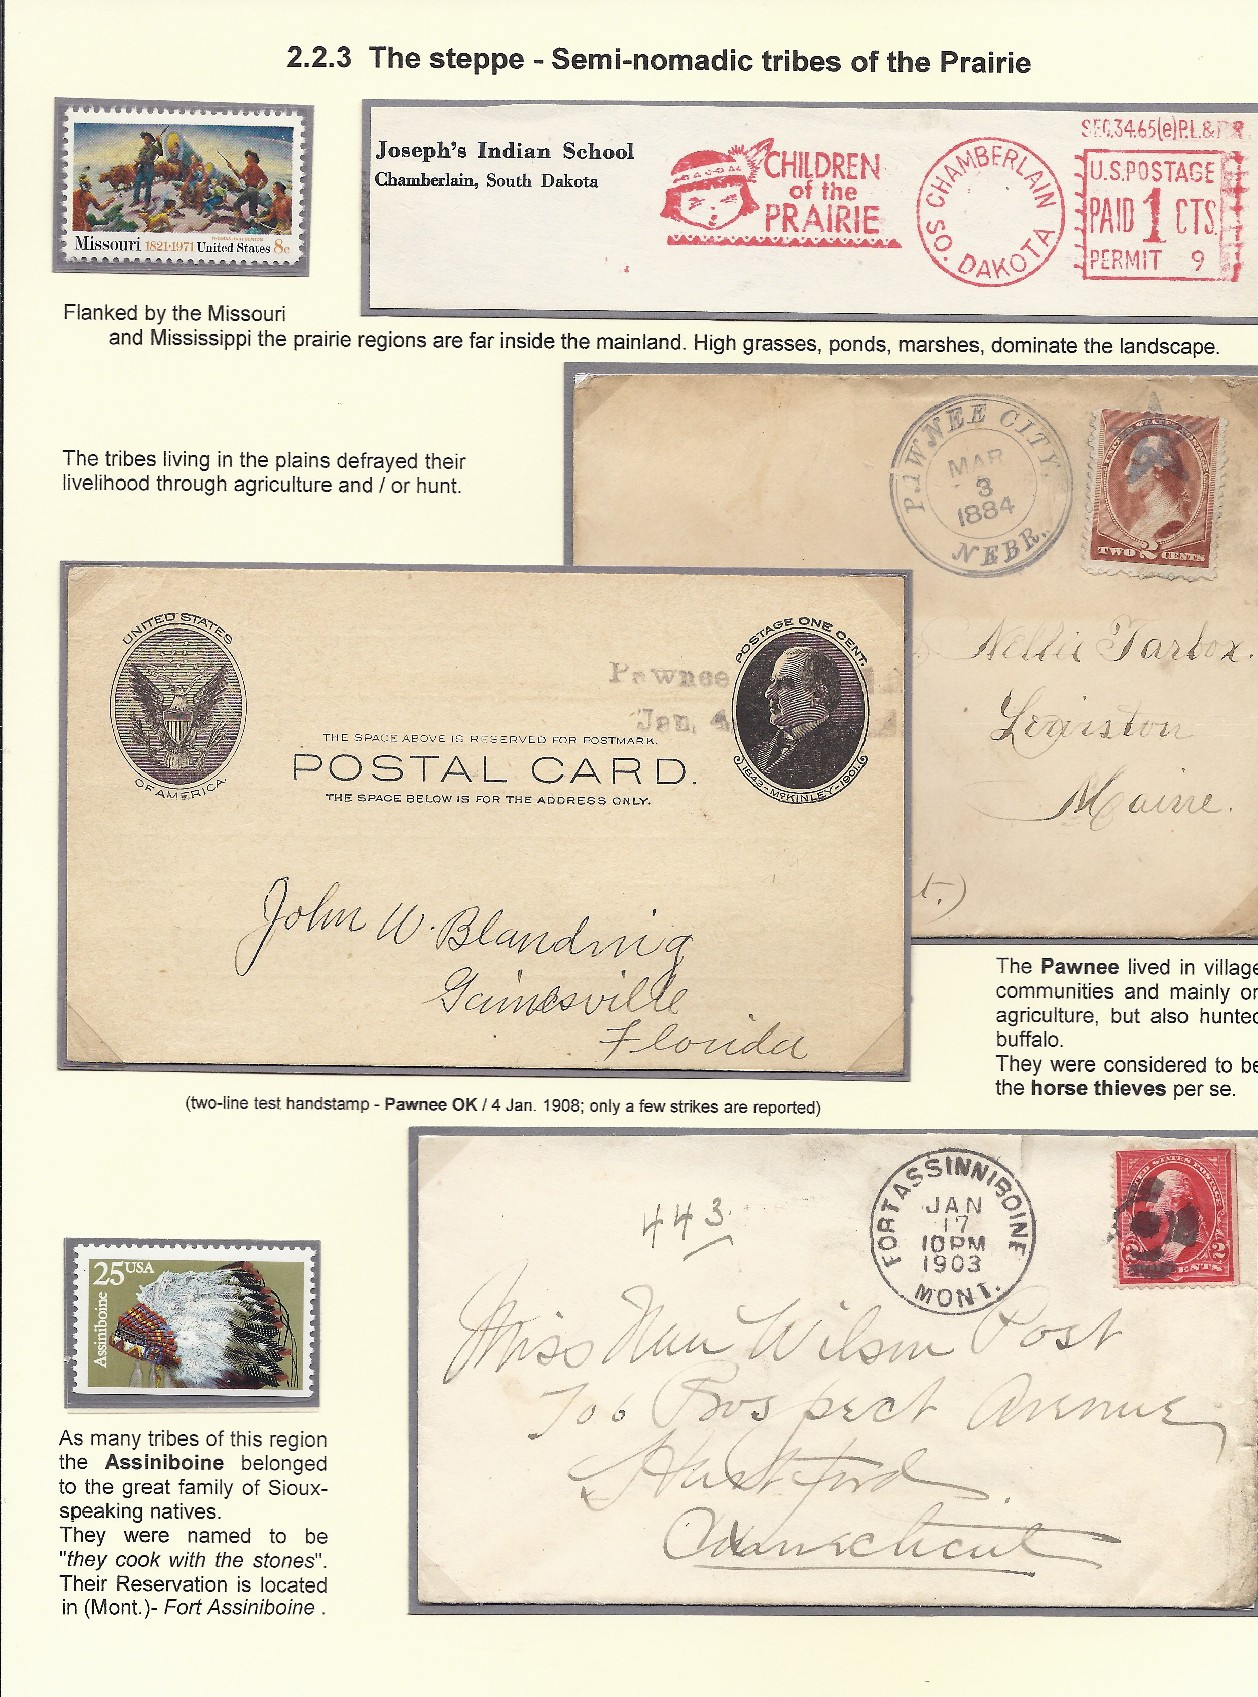 2.2.3 The steppe - Semi-nomadic tribes of the Prairie
Missouri 1821·1971 United States 8c
Joseph's Indian School
Chamberlain, South Dakota
CHILDREN
of the
PRAIRIE
CHAMBERLAIN
SO. DAKOTA
SEC.34.65(e)P.L.&R.
U.S.POSTAGE
PAID 1 CTS.
PERMIT 9
Flanked by the Missouri
and Mississippi the prairie regions are far inside the mainland. High grasses, ponds, marshes, dominate the landscape.
The tribes living in the plains defrayed their
livelihood through agriculture and / or hunt.
PAWNEE CITY,
MAR
3
1884
NEBR.
TWO 2 CENTS
Nellie Tarbox.
Lewiston
Maine.
t.)
UNITED STATES
OF AMERICA.
Pawnee
Jan. 4
POSTAGE ONE CENT.
1843-McKINLEY-1901.
THE SPACE ABOVE IS RESERVED FOR POSTMARK.
POSTAL CARD.
THE SPACE BELOW IS FOR THE ADDRESS ONLY.
John W. Blanding
Gainesville
Florida
The Pawnee lived in village
communities and mainly or
agriculture, but also hunted
buffalo.
They were considered to be
the horse thieves per se.
(two-line test handstamp - Pawnee OK / 4 Jan. 1908; only a few strikes are reported)
25 USA
Assiniboine
As many tribes of this region
the Assiniboine belonged
to the great family of Sioux-
speaking natives.
They were named to be
"they cook with the stones".
Their Reservation is located
in (Mont.)- Fort Assiniboine .
443
FORT ASSINNIBOINE
JAN
17
10PM
1903
MONT.
UNITED STATES POSTAGE
2 CENTS 2
Miss Nan Wilson Post
706 Prospect Avenue,
Hartford.
Connecticut